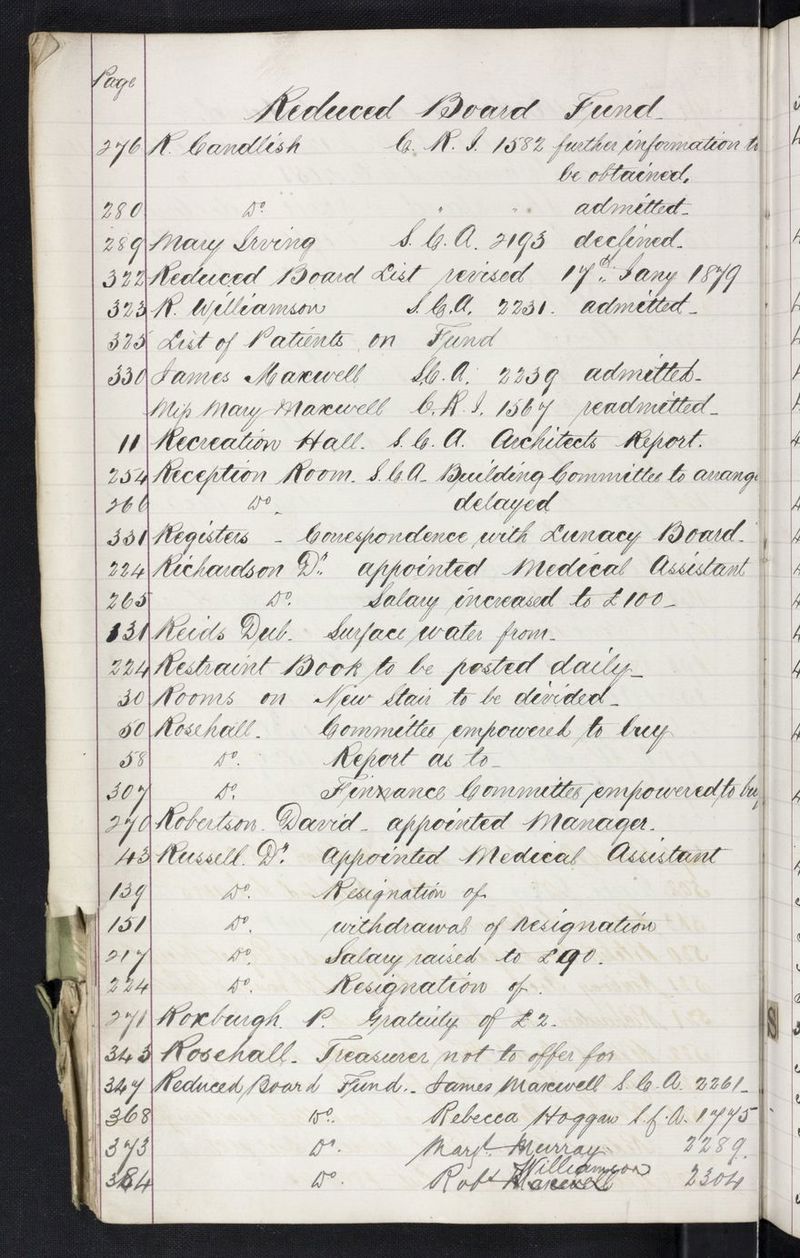 Page
Reduced Board Fund
276 R. Candlish C. R. I. 1582 further information to
be obtained.
280 Do. " " admitted
289 Mary Irving S. C. A. 2193 declined.
322 Reduced Board List revised 17th Jany 1879
323 R. Williamson S. C. A. 2231. admitted
325 List of Patients on Fund
330 James Maxwell S.C.A. 2239 admitted
Miss Mary Maxwell C. R. I. 1567 readmitted
11 Recreation Hall. S. C. A. Architects Report.
254 Reception Room. S.C.A. Building Committee to arrange
266 Do. delayed
331 Registers - Correspondence with Lunacy Board.
224 Richardson Dr. appointed Medical Assistant
265 Do. Salary increased to £100
131 Reids Dub. Surface water from
224 Restraint Book to be posted daily
30 Rooms on New Stair to be divided
50 Rosehall. Committee empowered to buy
58 Do. Report as to
307 Do. Finance Committee empowered to buy
270 Robertson. David appointed Manager.
43 Russell. Dr. appointed Medical Assistant
139 Do. Resignation of
151 Do. withdrawal of resignation
217 Do. Salary raised to £90.
224 Do. Resignation of.
271 Roxburgh. P. Gratuity of £2.
343 Rosehall. Treasurer not to offer for
347 Reduced Board Fund. James Maxwell S. C. A. 2261
368 Do. Rebecca Hoggan S. C. A. 1775
373 Do. Margt. Murray 2289.
384 Do. Robt Maxwell Williamson 2304
S